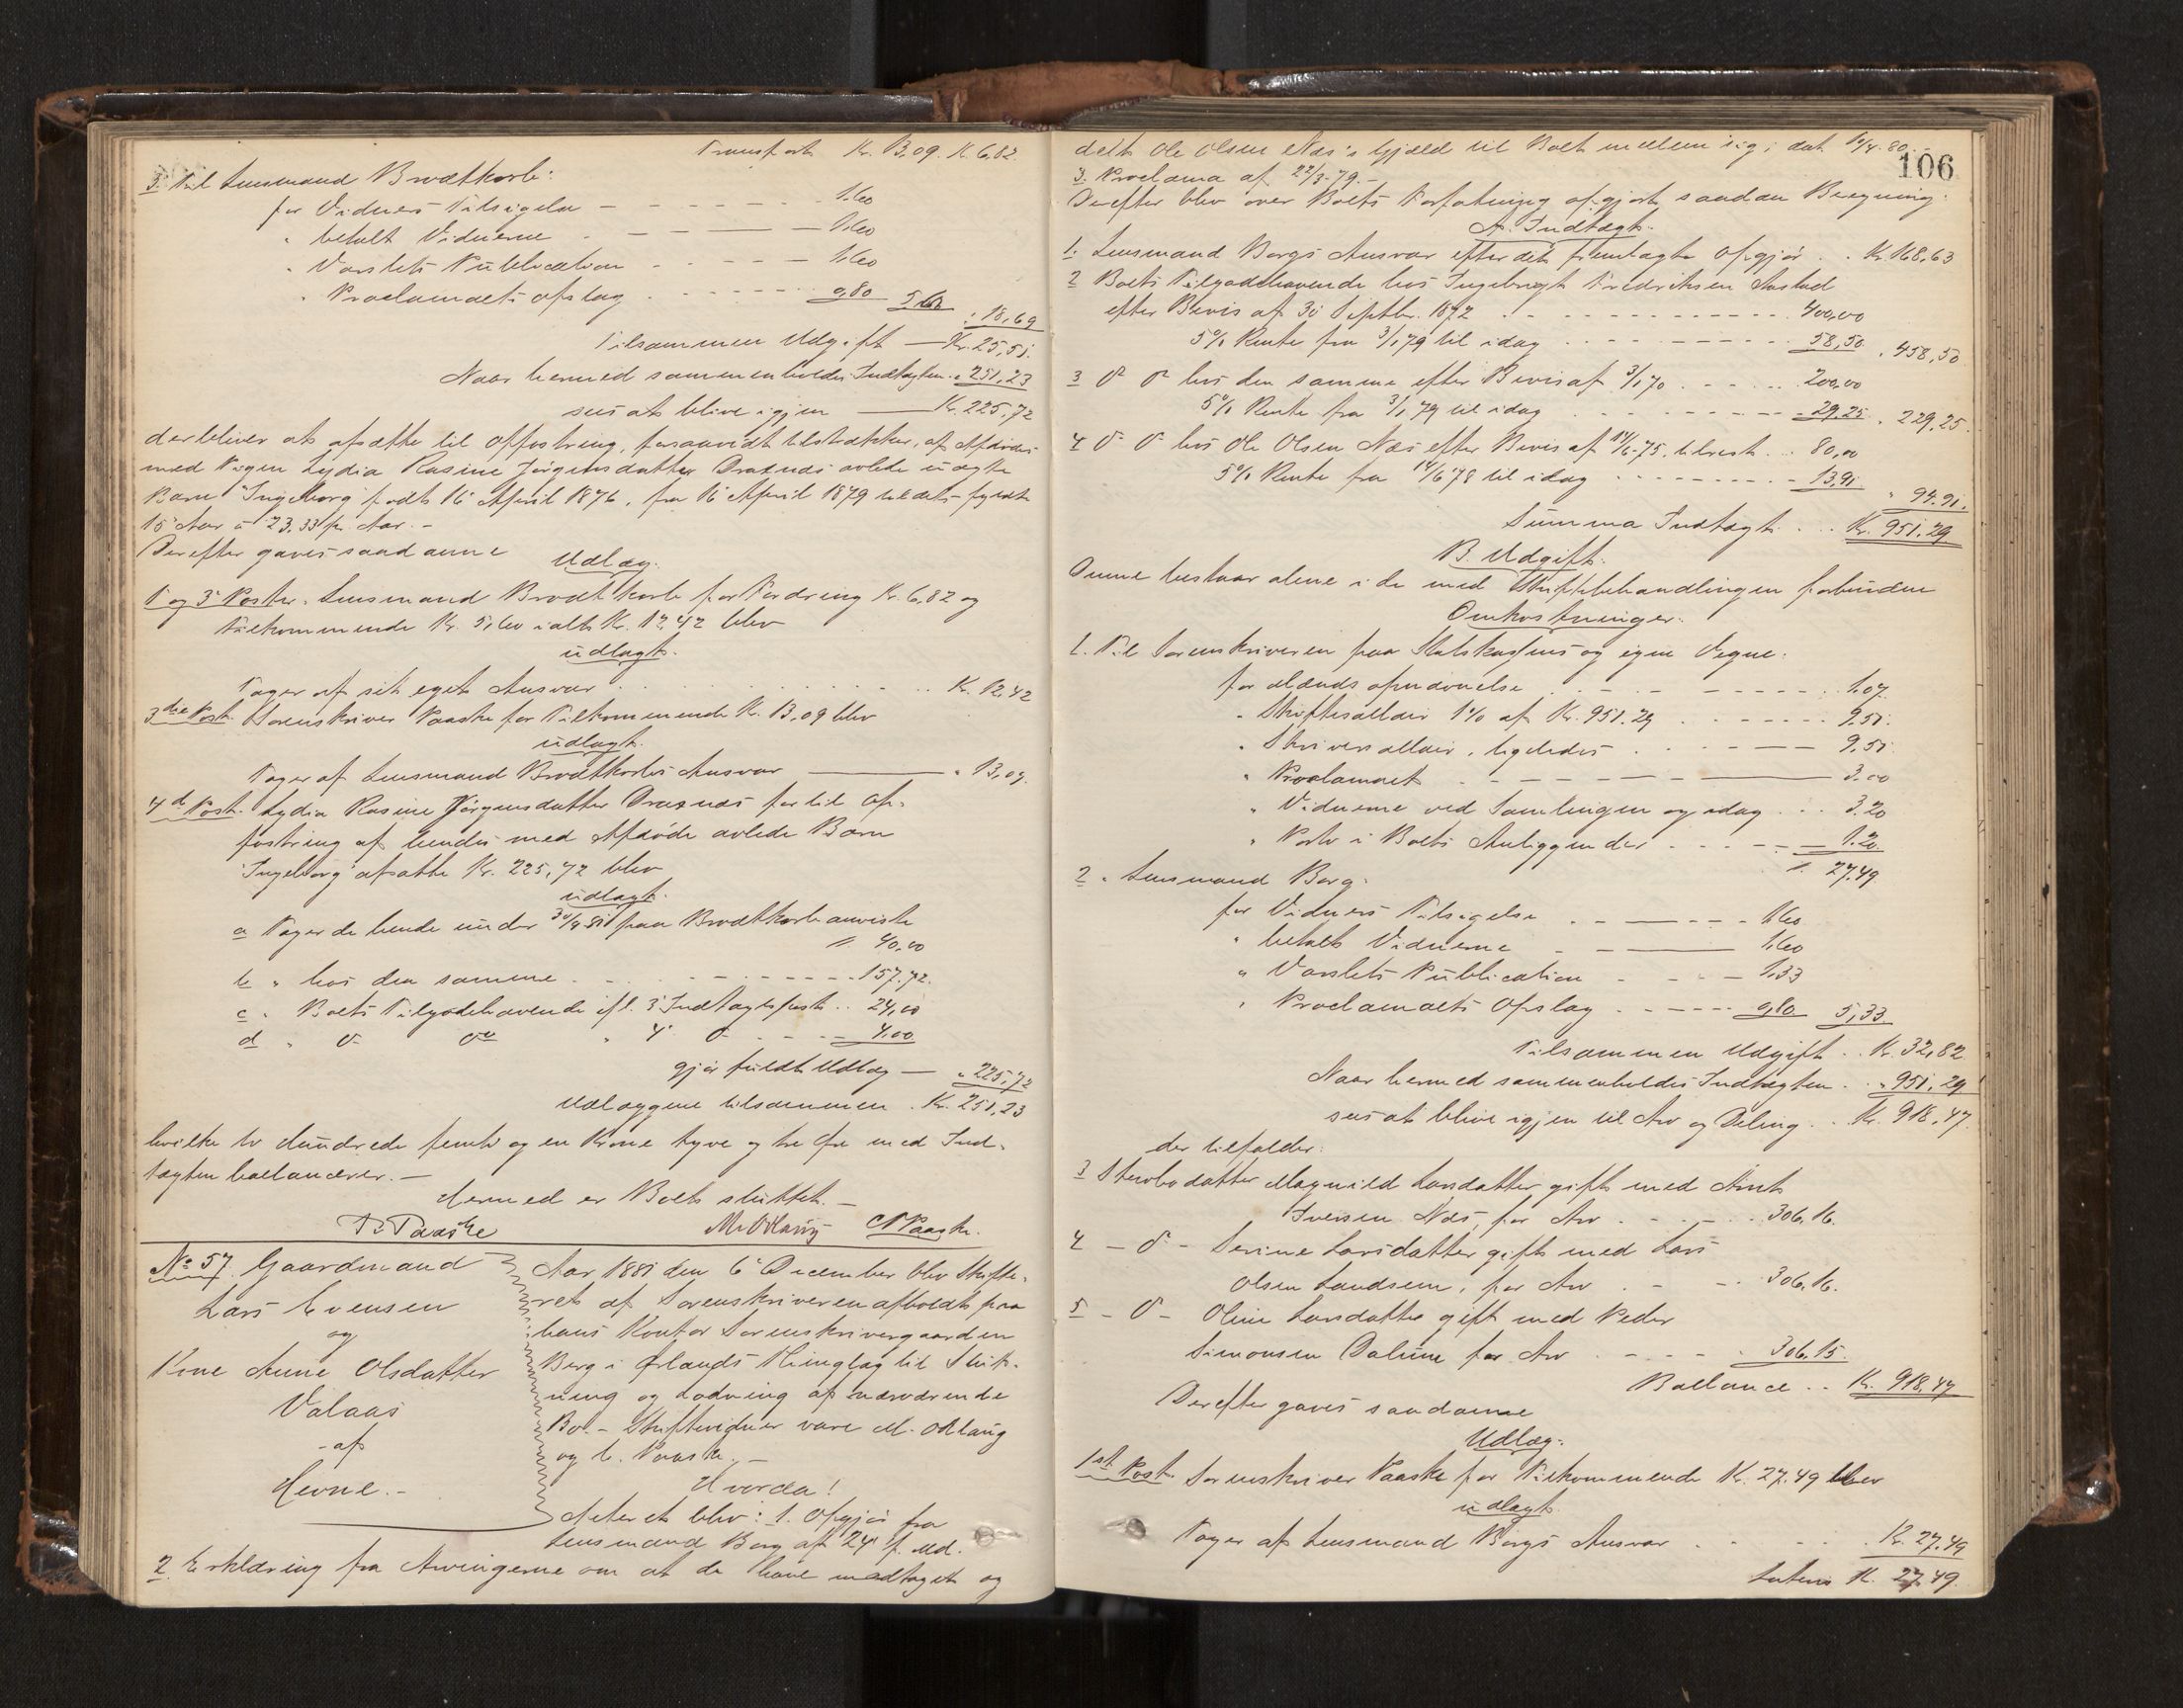 Transport Kr. 13,09. K. 6,82
3. Til Lensmand Brodtkorb:
for Vidners Tilsigelse - - - - - 1.60
" betalt Vidnerne - - - - 1.60
" Varslets Publication - - - - 1.60
" Proclamaets opslag - - - - 0,80 5,60
" 18,69
Tilsammen Udgift — Kr. 25,51.
Naar hermed sammenholdes Indtægten " 251,23
sees at blive igjen — Kr. 225,72
der bliver at afsætte til Opfostring, forsaavidt tilstrækker, af Afdødes
med Pigen Lydia Rasine Jörgensdatter Draxnæs avlede uægte
Barn "Ingeborg" født 16 April 1876, fra 16 April 1879 til dets fyldte
15 Aar à 23,33 pr. Aar. -
Derefter gaves saadanne
Udlæg.
1 og 3 Poster. Lensmand Brodtkorb for Fordring Kr. 6,82 og
Tilkommende Kr. 5,60 ialt Kr. 12,42 blev
udlagt.
Tager af sit eget Ansvar . . . . Kr. 12,42
3die Post. Sorenskriver Paaske for Tilkommende Kr. 13,09 blev
udlagt.
Tager af Lensmand Brodtkorbs Ansvar — " 13,09.
4de Post. Lydia Rasine Jörgensdatter Draxnæs for til Op-
fostring af hendes med Afdøde avlede Barn
"Ingeborg" afsatte Kr. 225,72 blev
udlagt.
a Tager de hende under 30/9 81 paa Brodtkorb anviste
40,00
b " hos den samme . . - - - - 157.72.
c " Boets Tilgodehavende efl. 3 Indtægtspost . . 24,00
d " do do " 4 do - - - 4.00
gjör fuldt Udlæg — " 225,72
Udlæggene tilsammen . Kr. 251,23
hvilke to Hundrede femti og en Krone tyve og tre Øre med Ind-
tægten balancerer. —
Hermed er Boet sluttet. —
P. Paaske M. Ødlaug C. Paaske.
No 57. Gaardmand
Lars Evensen
og
Kone Anne Olsdatter
Valaas
- af
Hevne. -
Aar 1881 den 6 December blev Skifte-
ret af Sorenskriveren afholdt paa
hans Kontor Sorenskrivergaarden
Berg i Ørlands Thinglag til Slut-
ning og Lodning af nærværende
Bo. - Skiftevidner vare M. Ødlaug
og C. Paaske. —
Hvorda!
Acteret blev: 1. Opgjör fra
Lensmand Borg af 24 f. Md.
2. Erklæring fra Arvingerne om at de have modtaget og
106
delt Ole Olsen Næs's Gjæld til Boet mellem sig, dat. 14/4. 80. -
3. Proclama af 22/3-79. -
Derefter blev over Boets Forfatning opgjort saadan Beregning:
A. Indtægt.
1. Lensmand Borgs Ansvar efter det fremlagte Opgjör . . Kr. 168,63
2 Boets Tilgodehavende hos Ingebrigt Fredriksen Aastad
efter Bevis af 30 Septbr. 1872 . . - - - - 400,00
5% Rente fra 3/1 79 til idag - - - - 58,50. " 458,50
3 do do hos den samme efter Bevis af 3/1 70 . - - - 200,00
5% Rente fra 3/1 79 til idag - - - - 29.25. " 229,25.
4 do do hos Ole Olsen Næs efter Bevis af 14/6-75. tilrest . . 80,00
5% Rente fra 14/6 78 til idag - - - - 13,91.
" 94.91.
Summa Indtægt . . . Kr. 951.29
B. Udgift.
Denne bestaar alene i de med Skiftebehandlingen forbundne
Omkostninger:
1. Til Sorenskriveren paa Statskassens og egne Vegne:
for Mænds opnævnelse . . - - - - 1.07.
" Skiftesallair 1% af Kr. 951.29 . - - - - 9.51.
" Skriversallair, ligeledes . - - - - 9,51.
" Proclamaet - - - - 3.00
" Vidnerne ved Samlingen og idag . . . 3.20
" Porto i Boets Anliggender - - - - 1.20.
27,49
2. Lensmand Borg:
for Vidners Tilsigelse . - - - - 1.60
" betalt Vidnerne - - - 1,60
" Varslets Publication - - - 1,33
" Proclamaets Opslag - - - - 0,80 5,33
Tilsammen Udgift . . Kr. 32,82
Naar hermed sammenholdes Indtægten . . " 951,29
sees at blive igjen til Arv og Deling . . Kr. 918,47.
der tilfalder:
3 Stervbodatter Magnild Larsdatter gift med Arnt
Iversen Næs, for Arv . - - - 306,16.
4 - do - Serine Larsdatter gift med Lars
Olsen Sandsem, for Arv . - - . 306,16.
5 - do - Oline Larsdatter gift med Peder
Simonsen Dalum for Arv - - - - 306,15.
Ballance . . Kr. 918,47
Derefter gaves saadanne
Udlæg:
1st Post. Sorenskriver Paaske for Tilkommende Kr. 27.49 blev
udlagt.
Tager af Lensmand Borgs Ansvar . . . . Kr. 27.49
Lateris K. 27.49.